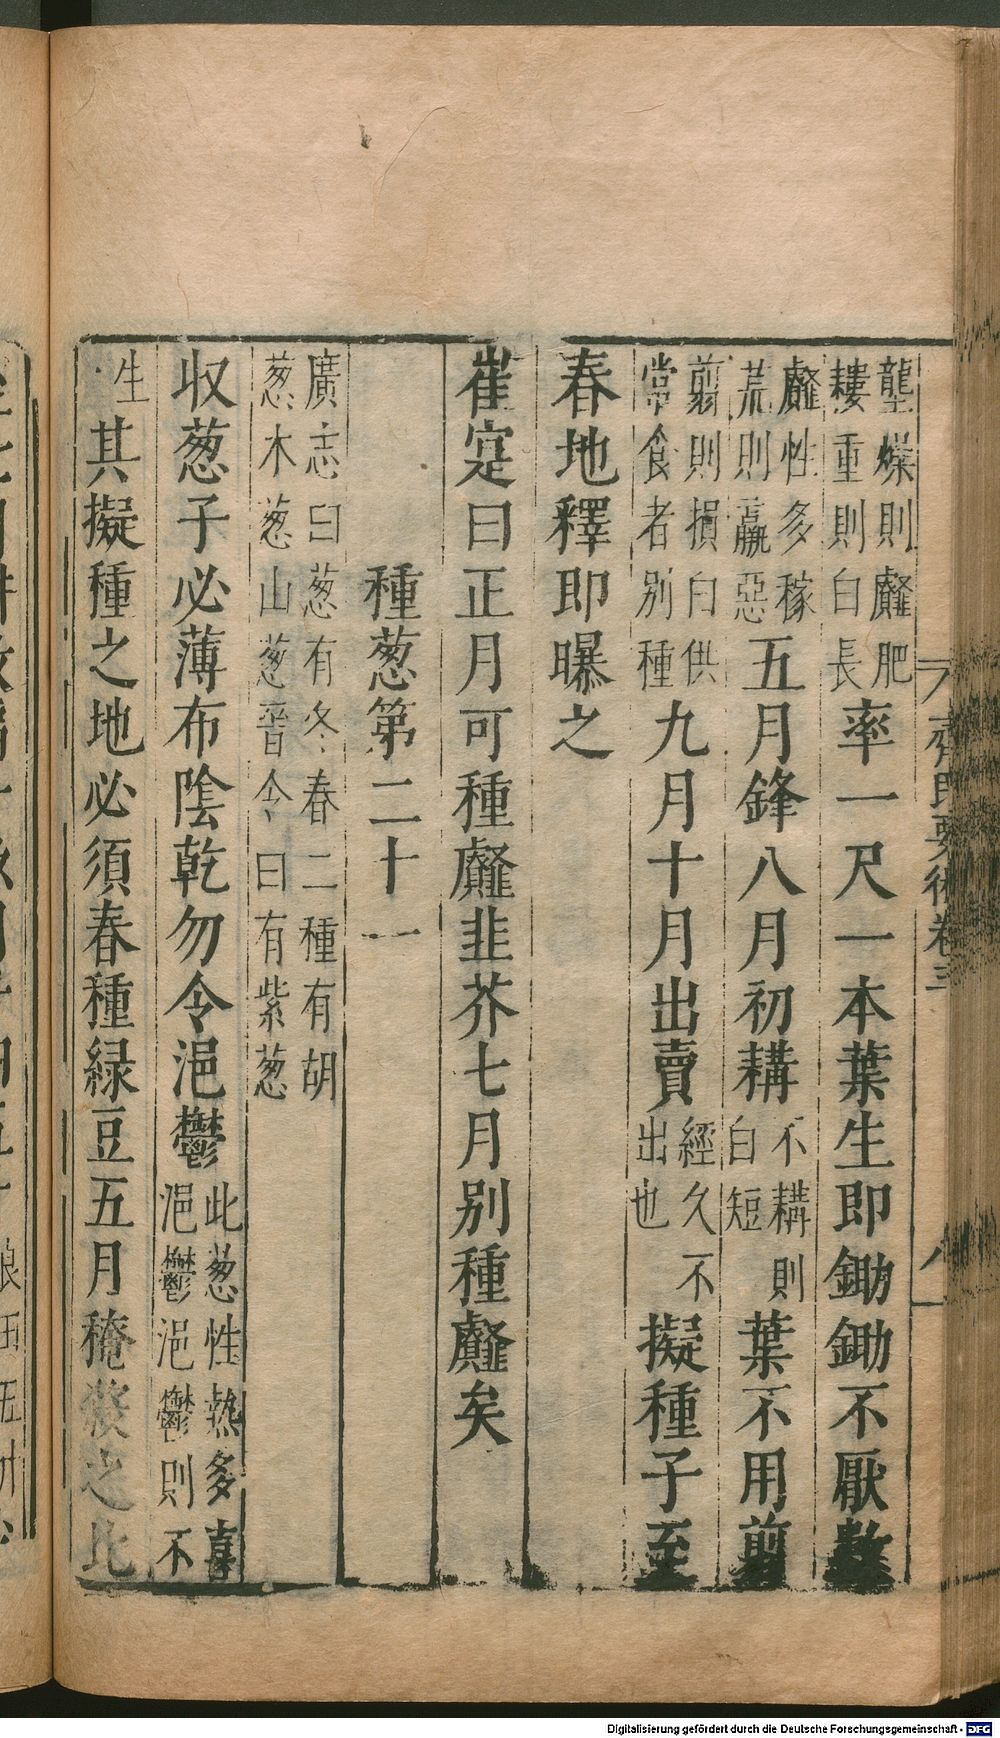 壟燥則䪥肥
耬重則白長
率一尺一本葉生即鋤鋤不厭數
䪥性多穢
荒則羸惡
五月鋒八月初耩
不耩則
白短
葉不用剪
剪則損白供
常食者别種
九月十月出賣
經久不
出也
擬種子至
春地釋即曝之
崔寔曰正月可種䪥韭芥七月别種䪥矣
種葱第二十一
廣志曰葱有冬春二種有胡
葱木葱山葱晉令曰有紫葱
收葱子必薄布陰乾勿令浥鬱
此葱性熱多喜
浥鬱浥鬱則不
生
其擬種之地必須春種緑豆五月䅖殺之比
齊民要術卷三
八
Digitalisierung gefördert durch die Deutsche Forschungsgemeinschaft - DFG